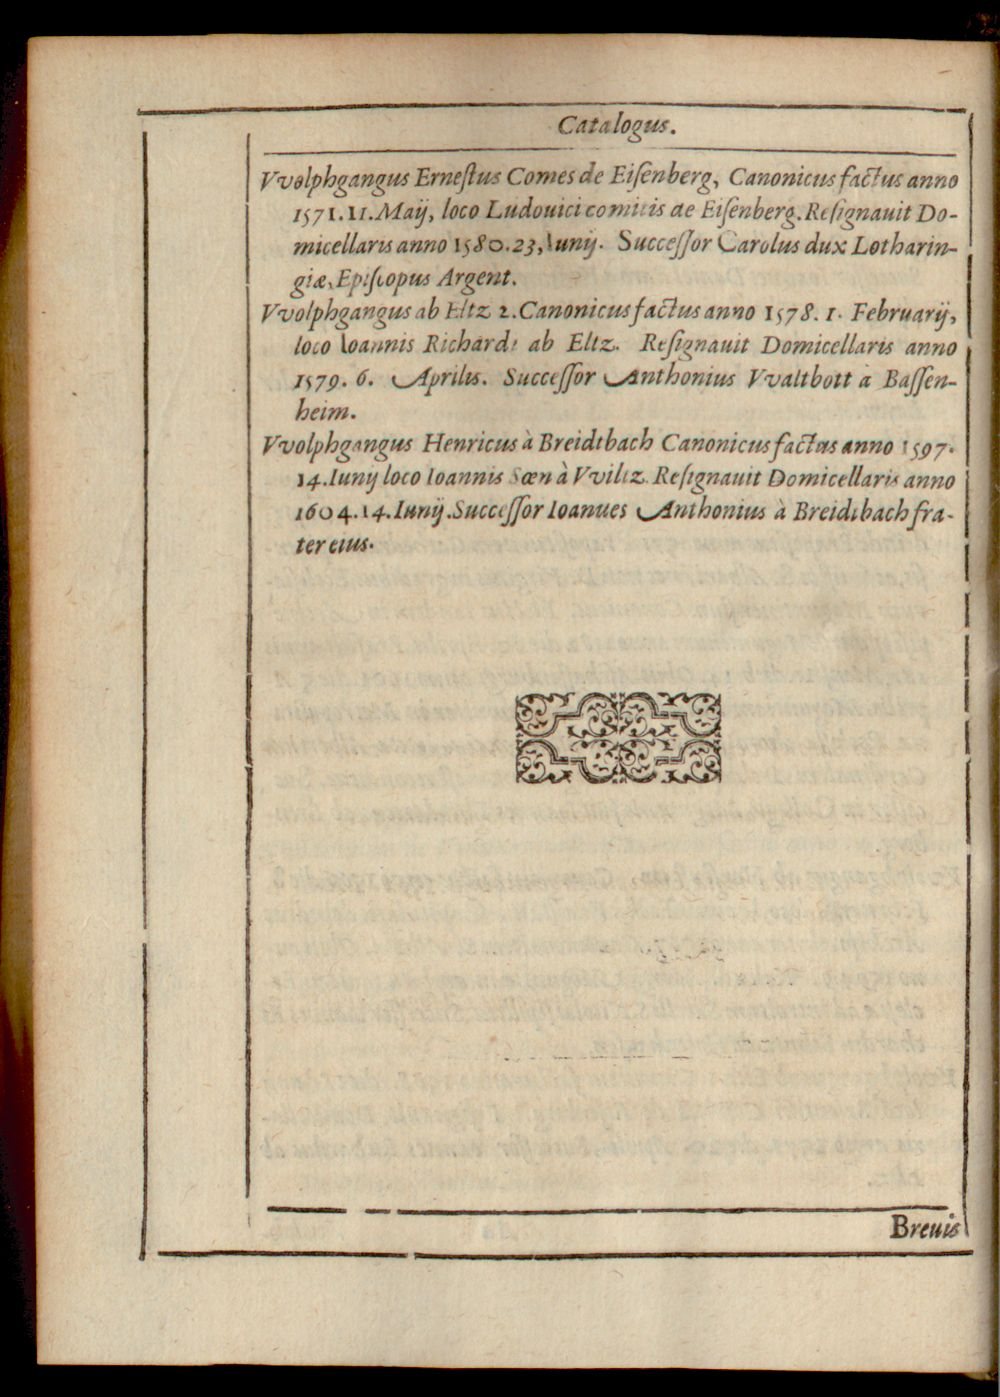 Catalogus.
Vvolphgangus Erneſtus Comes de Eiſenberg, Canonicus factus anno
1571. 11. Maij, loco Ludouici comitis de Eiſenberg. Reſignauit Do-
micellaris anno 1580. 23, Iunij. Succeſſor Carolus dux Lotharin-
giæ, Epiſcopus Argent.
Vvolphgangus ab Eltz 2. Canonicus factus anno 1578. 1. Februarij,
loco Ioannis Richardi ab Eltz. Reſignauit Domicellaris anno
1579. 6. Aprilis. Succeſſor Anthonius Vvaltbott à Baſſen-
heim.
Vvolphgangus Henricus à Breidtbach Canonicus factus anno 1597.
14. Iunij loco Ioannis Sœn à Vviltz. Reſignauit Domicellaris anno
1604. 14. Iunij. Succeſſor Ioanues Anthonius à Breidtbach fra-
ter eius.
Breuis